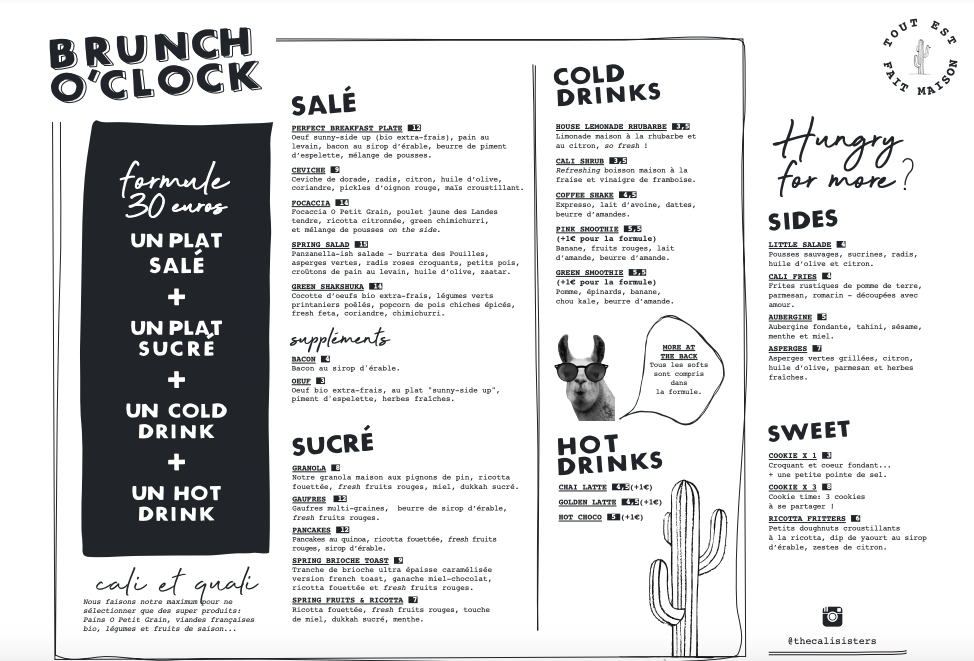 BRUNCH
O'CLOCK
formule
30 euros
UN PLAT
SALÉ
+
UN PLAT
SUCRÉ
+
UN COLD
DRINK
+
UN HOT
DRINK
cali et quali
Nous faisons notre maximum pour ne
sélectionner que des super produits:
Pains O Petit Grain, viandes françaises
bio, légumes et fruits de saison...
SALÉ
PERFECT BREAKFAST PLATE 12
Oeuf sunny-side up (bio extra-frais), pain au
levain, bacon au sirop d'érable, beurre de piment
d'espelette, mélange de pousses.
CEVICHE 9
Ceviche de dorade, radis, citron, huile d'olive,
coriandre, pickles d'oignon rouge, maïs croustillant.
FOCACCIA 14
Focaccia O Petit Grain, poulet jaune des Landes
tendre, ricotta citronnée, green chimichurri,
et mélange de pousses on the side.
SPRING SALAD 15
Panzanella-ish salade - burrata des Pouilles,
asperges vertes, radis roses croquants, petits pois,
croûtons de pain au levain, huile d'olive, zaatar.
GREEN SHAKSHUKA 14
Cocotte d'oeufs bio extra-frais, légumes verts
printaniers poêlés, popcorn de pois chiches épicés,
fresh feta, coriandre, chimichurri.
suppléments
BACON 4
Bacon au sirop d'érable.
OEUF 3
Oeuf bio extra-frais, au plat "sunny-side up",
piment d'espelette, herbes fraîches.
SUCRÉ
GRANOLA 8
Notre granola maison aux pignons de pin, ricotta
fouettée, fresh fruits rouges, miel, dukkah sucré.
GAUFRES 12
Gaufres multi-graines, beurre de sirop d'érable,
fresh fruits rouges.
PANCAKES 12
Pancakes au quinoa, ricotta fouettée, fresh fruits
rouges, sirop d'érable.
SPRING BRIOCHE TOAST 9
Tranche de brioche ultra épaisse caramélisée
version french toast, ganache miel-chocolat,
ricotta fouettée et fresh fruits rouges.
SPRING FRUITS & RICOTTA 7
Ricotta fouettée, fresh fruits rouges, touche
de miel, dukkah sucré, menthe.
COLD
DRINKS
HOUSE LEMONADE RHUBARBE 3,5
Limonade maison à la rhubarbe et
au citron, so fresh !
CALI SHRUB 3,5
Refreshing boisson maison à la
fraise et vinaigre de framboise.
COFFEE SHAKE 4,5
Expresso, lait d'avoine, dattes,
beurre d'amandes.
PINK SMOOTHIE 5,5
(+1€ pour la formule)
Banane, fruits rouges, lait
d'amande, beurre d'amande.
GREEN SMOOTHIE 5,5
(+1€ pour la formule)
Pomme, épinards, banane,
chou kale, beurre d'amande.
MORE AT
THE BACK
Tous les softs
sont compris
dans
la formule.
HOT
DRINKS
CHAI LATTE 4,5(+1€)
GOLDEN LATTE 4,5(+1€)
HOT CHOCO 5 (+1€)
TOUT EST
FAIT MAISON
Hungry
for more?
SIDES
LITTLE SALADE 4
Pousses sauvages, sucrines, radis,
huile d'olive et citron.
CALI FRIES 4
Frites rustiques de pomme de terre,
parmesan, romarin - découpées avec
amour.
AUBERGINE 5
Aubergine fondante, tahini, sésame,
menthe et miel.
ASPERGES 7
Asperges vertes grillées, citron,
huile d'olive, parmesan et herbes
fraîches.
SWEET
COOKIE X 1 3
Croquant et coeur fondant...
+ une petite pointe de sel.
COOKIE X 3 8
Cookie time: 3 cookies
à se partager !
RICOTTA FRITTERS 6
Petits doughnuts croustillants
à la ricotta, dip de yaourt au sirop
d'érable, zestes de citron.
@thecalisisters